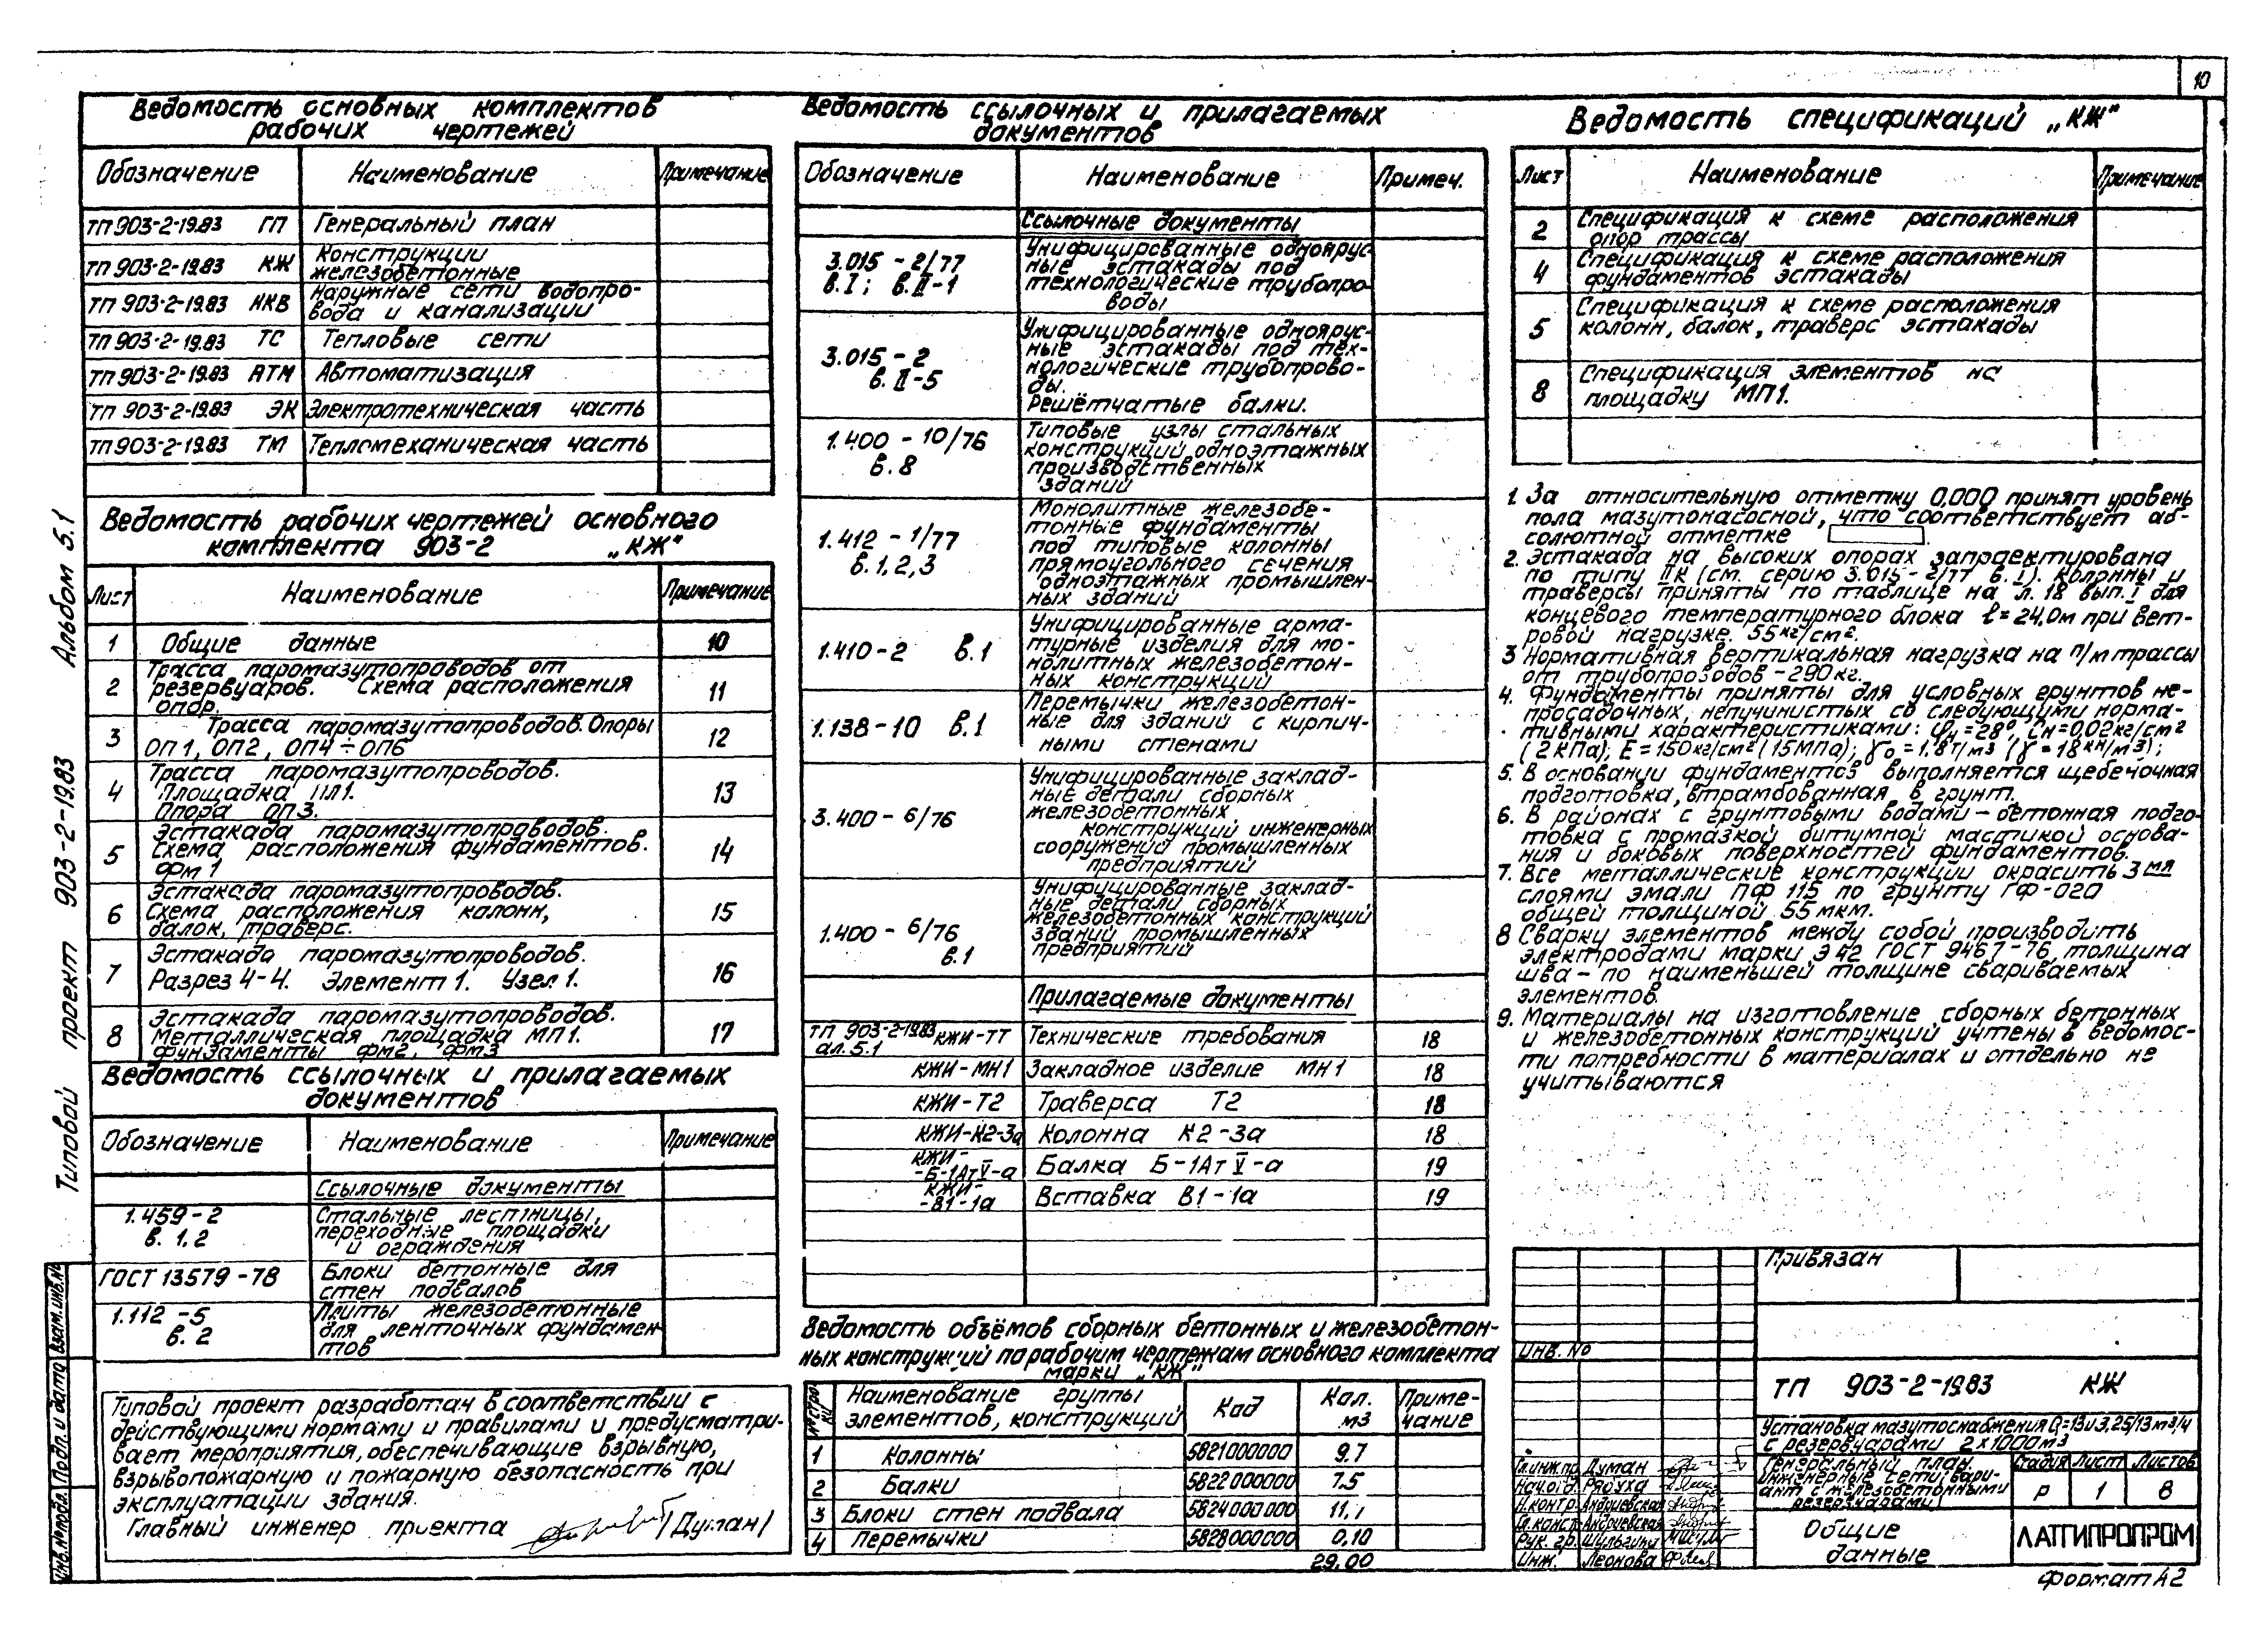 10
Типовой проект 903-2-19.83 Альбом 5.1
Ведомость основных комплектов
рабочих чертежей
Обозначение Наименование Примечание
ТП 903-2-19.83 ГП Генеральный план
ТП 903-2-19.83 КЖ Конструкции
железобетонные
ТП 903-2-19.83 НКВ Наружные сети водопро-
вода и канализации
ТП 903-2-19.83 ТС Тепловые сети
ТП 903-2-19.83 АТМ Автоматизация
ТП 903-2-19.83 ЭК Электротехническая часть
ТП 903-2-19.83 ТМ Тепломеханическая часть
Ведомость рабочих чертежей основного
комплекта 903-2 „КЖ"
Лист Наименование Примечание
1 Общие данные 10
2 Трасса паромазутопроводов от
резервуаров. Схема расположения
опор. 11
3 Трасса паромазутопроводов. Опоры
ОП1, ОП2, ОП4÷ОП6 12
4 Трасса паромазутопроводов.
Площадка ПЛ1.
Опора ОП3. 13
5 Эстакада паромазутопроводов.
Схема расположения фундаментов.
Фм 1 14
6 Эстакада паромазутопроводов.
Схема расположения колонн,
балок, траверс. 15
7 Эстакада паромазутопроводов.
Разрез 4-4. Элемент 1. Узел 1. 16
8 Эстакада паромазутопроводов.
Металлическая площадка МП1.
Фундаменты Фм2, Фм3 17
Ведомость ссылочных и прилагаемых
документов
Обозначение Наименование Примечание
Ссылочные документы
1.459-2
в. 1,2
Стальные лестницы,
переходные площадки
и ограждения
ГОСТ 13579-78 Блоки бетонные для
стен подвалов
1.112-5
в. 2
Плиты железобетонные
для ленточных фундамен-
тов
Типовой проект разработан в соответствии с
действующими нормами и правилами и предусматри-
вает мероприятия, обеспечивающие взрывную,
взрывопожарную и пожарную безопасность при
эксплуатации здания.
Главный инженер проекта /Думан/
Инв.№подл. Подп. и дата Взам.инв.№
Ведомость ссылочных и прилагаемых
документов
Обозначение Наименование Примеч.
Ссылочные документы
3.015-2/77
в.I; в.II-1
Унифицированные одноярус-
ные эстакады под
технологические трубопро-
воды
3.015-2
в. II-5
Унифицированные одноярус-
ные эстакады под тех-
нологические трубопрово-
ды.
Решётчатые балки.
1.400-10/76
в. 8
Типовые узлы стальных
конструкций одноэтажных
производственных
зданий
1.412-1/77
в. 1,2,3
Монолитные железобе-
тонные фундаменты
под типовые колонны
прямоугольного сечения
одноэтажных промышлен-
ных зданий
1.410-2 в.1 Унифицированные арма-
турные изделия для мо-
нолитных железобетон-
ных конструкций
1.138-10 в.1 Перемычки железобетон-
ные для зданий с кирпич-
ными стенами
3.400-6/76
Унифицированные заклад-
ные детали сборных
железобетонных
конструкций инженерных
сооружений промышленных
предприятий
1.400-6/76
в.1
Унифицированные заклад-
ные детали сборных
железобетонных конструкций
зданий промышленных
предприятий
Прилагаемые документы
ТП 903-2-19.83 КЖИ-ТТ Технические требования 18
ал. 5.1
КЖИ-МН1 Закладное изделие МН1 18
КЖИ-Т2 Траверса Т2 18
КЖИ-К2-3а Колонна К2-3а 18
КЖИ-
-Б-1АтV-а Балка Б-1АтV-а 19
КЖИ-
-В1-1а Вставка В1-1а 19
Ведомость объёмов сборных бетонных и железобетон-
ных конструкций по рабочим чертежам основного комплекта
марки „КЖ"
№ строки Наименование группы
элементов, конструкций Код Кол.
м3 Приме-
чание
1 Колонны 5821000000 9.7
2 Балки 5822000000 7.5
3 Блоки стен подвала 5824000000 11,1
4 Перемычки 5828000000 0,10
29.00
Ведомость спецификаций „КЖ"
Лист Наименование Примечание
2 Спецификация к схеме расположения
опор трассы
4 Спецификация к схеме расположения
фундаментов эстакады
5 Спецификация к схеме расположения
колонн, балок, траверс эстакады
8 Спецификация элементов на
площадку МП1.
1. За относительную отметку 0,000 принят уровень
пола мазутонасосной, что соответствует аб-
солютной отметке
2. Эстакада на высоких опорах запроектирована
по типу IIк (см. серию 3.015-2/77 в.I). Колонны и
траверсы приняты по таблице на л. 18 вып. I для
концевого температурного блока ℓ=24,0м при вет-
ровой нагрузке 55кг/см².
3 Нормативная вертикальная нагрузка на п/м трассы
от трубопроводов -290кг.
4. Фундаменты приняты для условных грунтов не-
просадочных, непучинистых со следующими норма-
тивными характеристиками: φн=28°, Cн=0,02кг/см²
(2кПа); Е=150кг/см² (15МПа); γо=1.8т/м3 (γ=18кн/м3);
5. В основании фундаментов выполняется щебёночная
подготовка, втрамбованная в грунт.
6. В районах с грунтовыми водами-бетонная подго-
товка с промазкой битумной мастикой основа-
ния и боковых поверхностей фундаментов.
7. Все металлические конструкции окрасить 3мя
слоями эмали ПФ 115 по грунту ГФ-020
общей толщиной 55 мкм.
8 Сварку элементов между собой производить
электродами марки Э42 ГОСТ 9467-76, толщина
шва-по наименьшей толщине свариваемых
элементов.
9. Материалы на изготовление сборных бетонных
и железобетонных конструкций учтены в ведомос-
ти потребности в материалах и отдельно не
учитываются
Привязан
Инв. №
ТП 903-2-19.83 КЖ
Установка мазутоснабжения Q=13и3,25/13м3/ч
с резервуарами 2х1000м3
Гл.инж.пр. Думан
Нач.отд. Рядуха
Н.контр. Андриевская
Гл.конст. Андриевская
Рук. гр. Шульгина
Инж. Леонова
Генеральный план.
Инженерные сети (вари-
ант с железобетонными
резервуарами)
Стадия Лист Листов
Р 1 8
Общие
данные
ЛАТГИПРОПРОМ
Формат А2